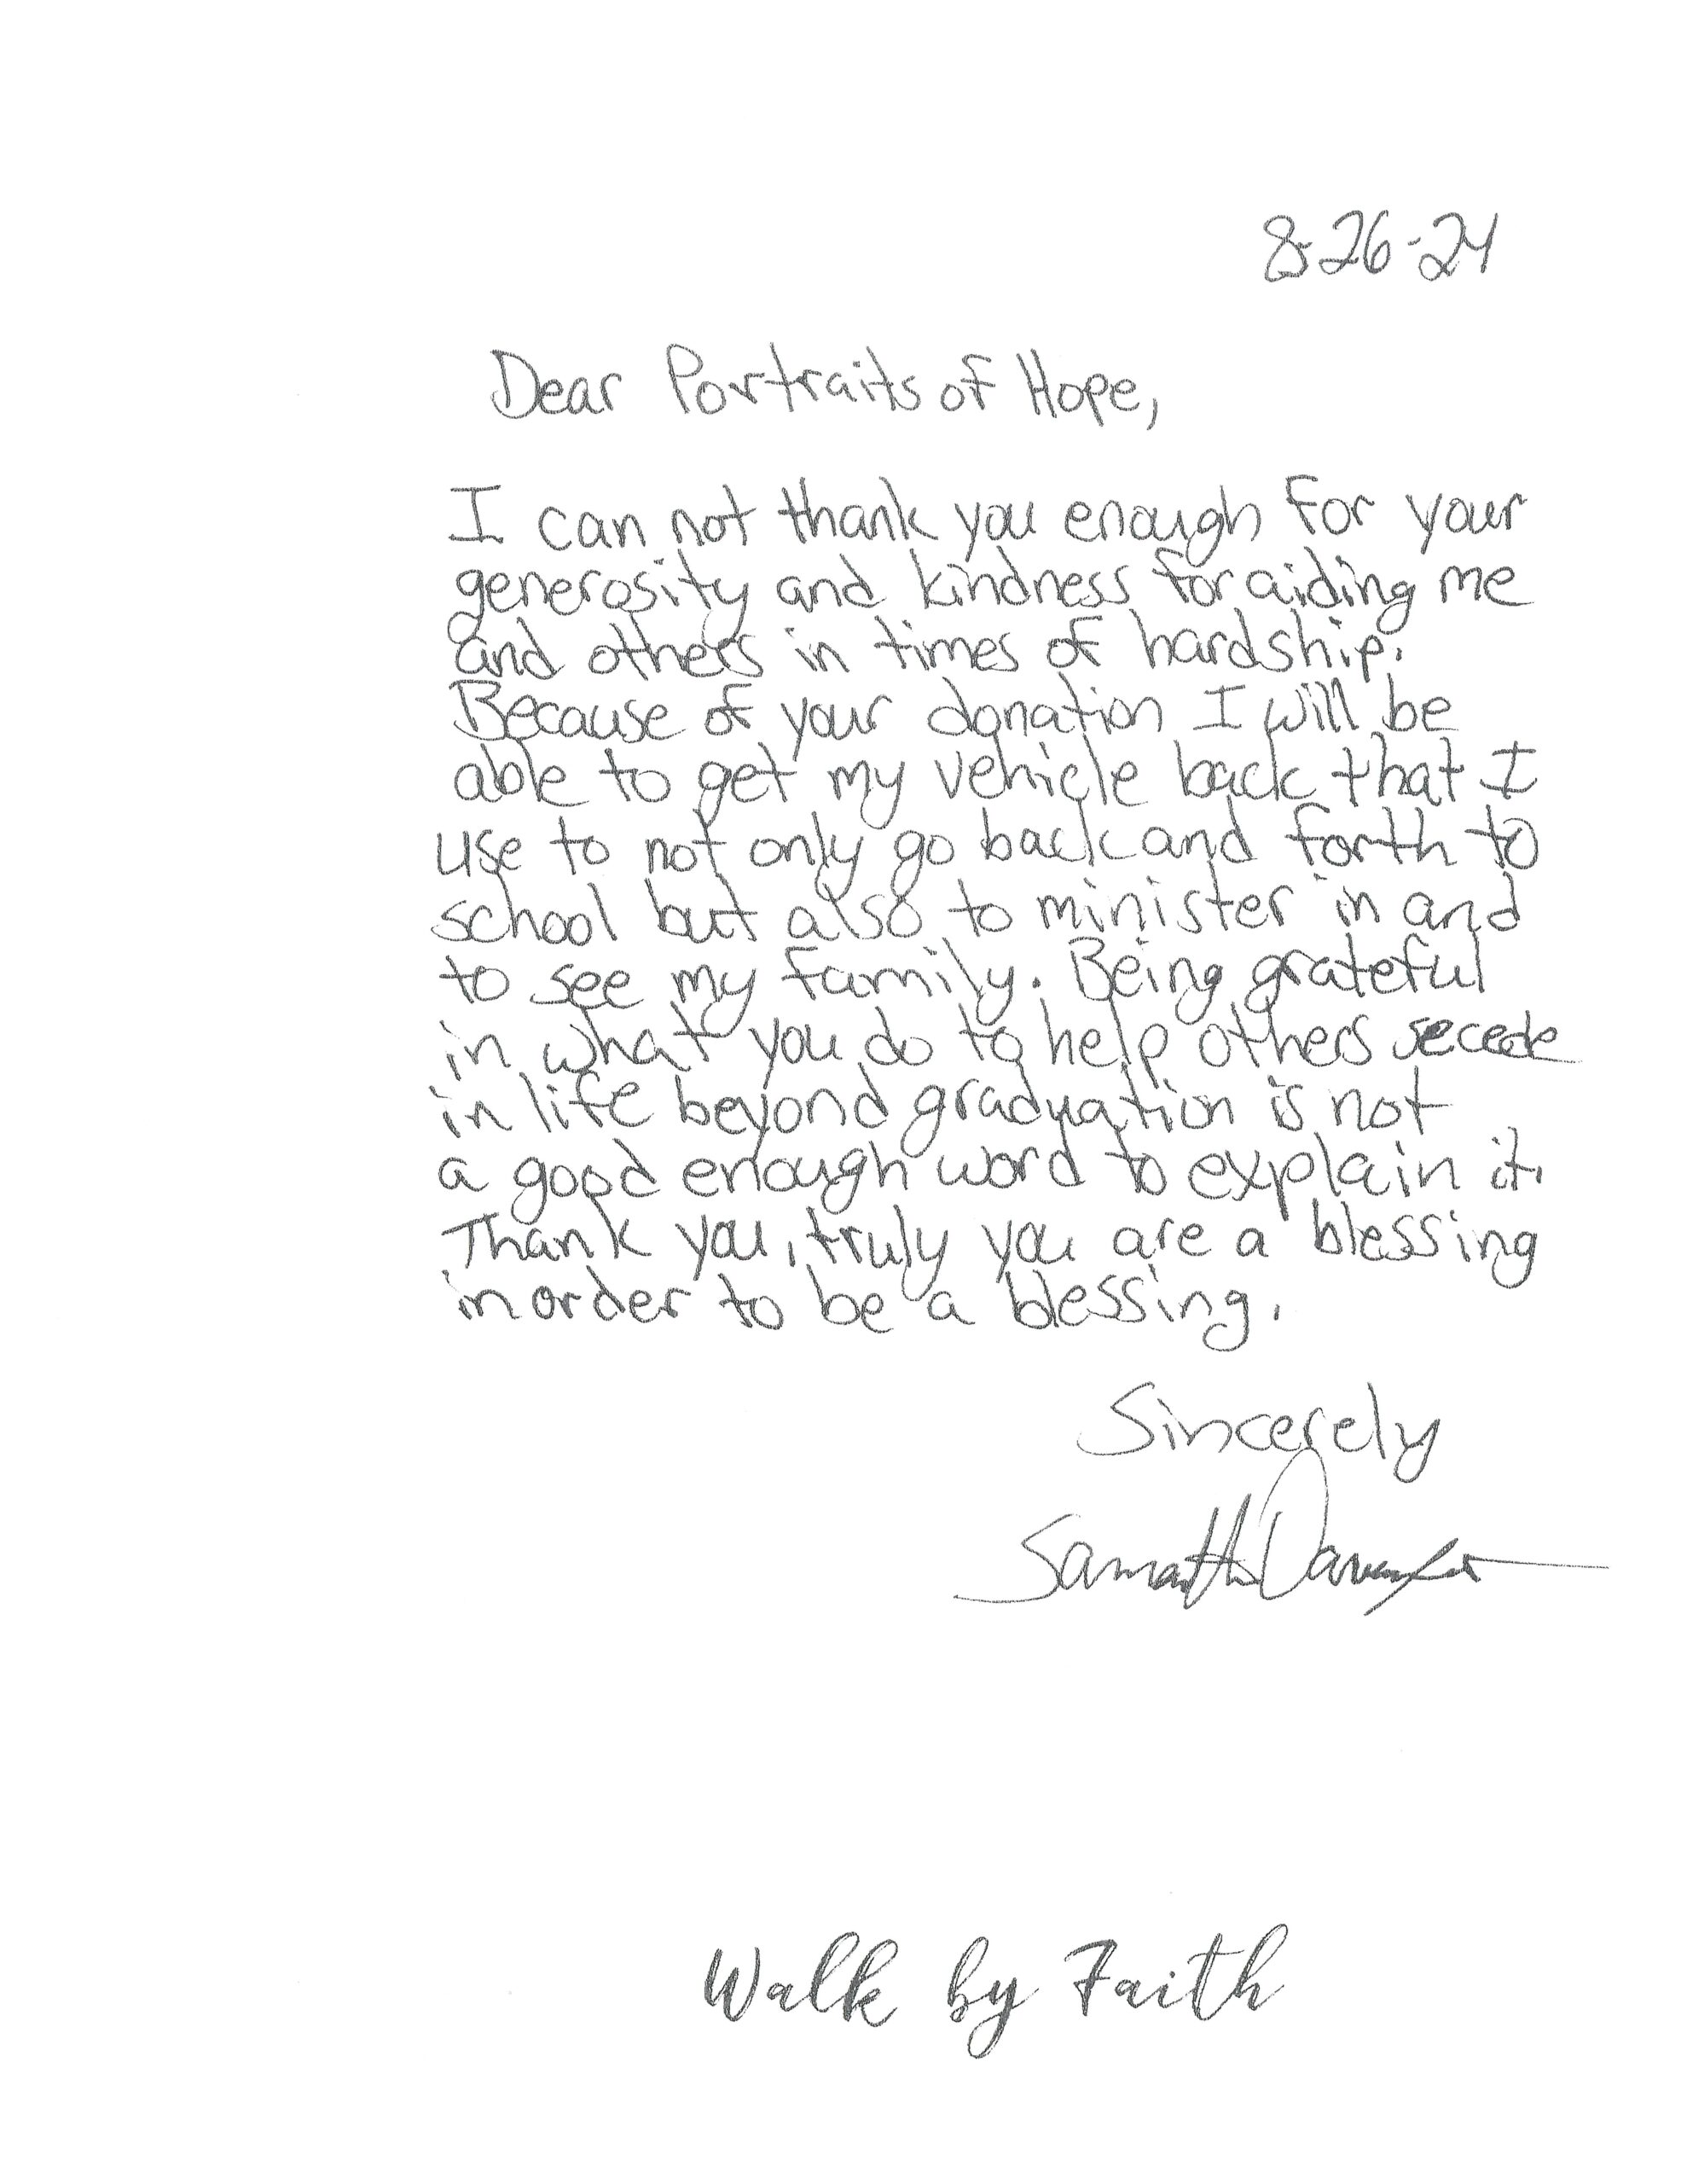 8-26-24
Dear Portraits of Hope,
I can not thank you enough for your
generosity and kindness for aiding me
and others in times of hardship.
Because of your donation I will be
able to get my vehicle back that I
use to not only go back and forth to
school but also to minister in and
to see my family. Being grateful
in what you do to help others secede
in life beyond graduation is not
a good enough word to explain it.
Thank you, truly you are a blessing
in order to be a blessing.
Sincerely
Samantha
Walk by Faith